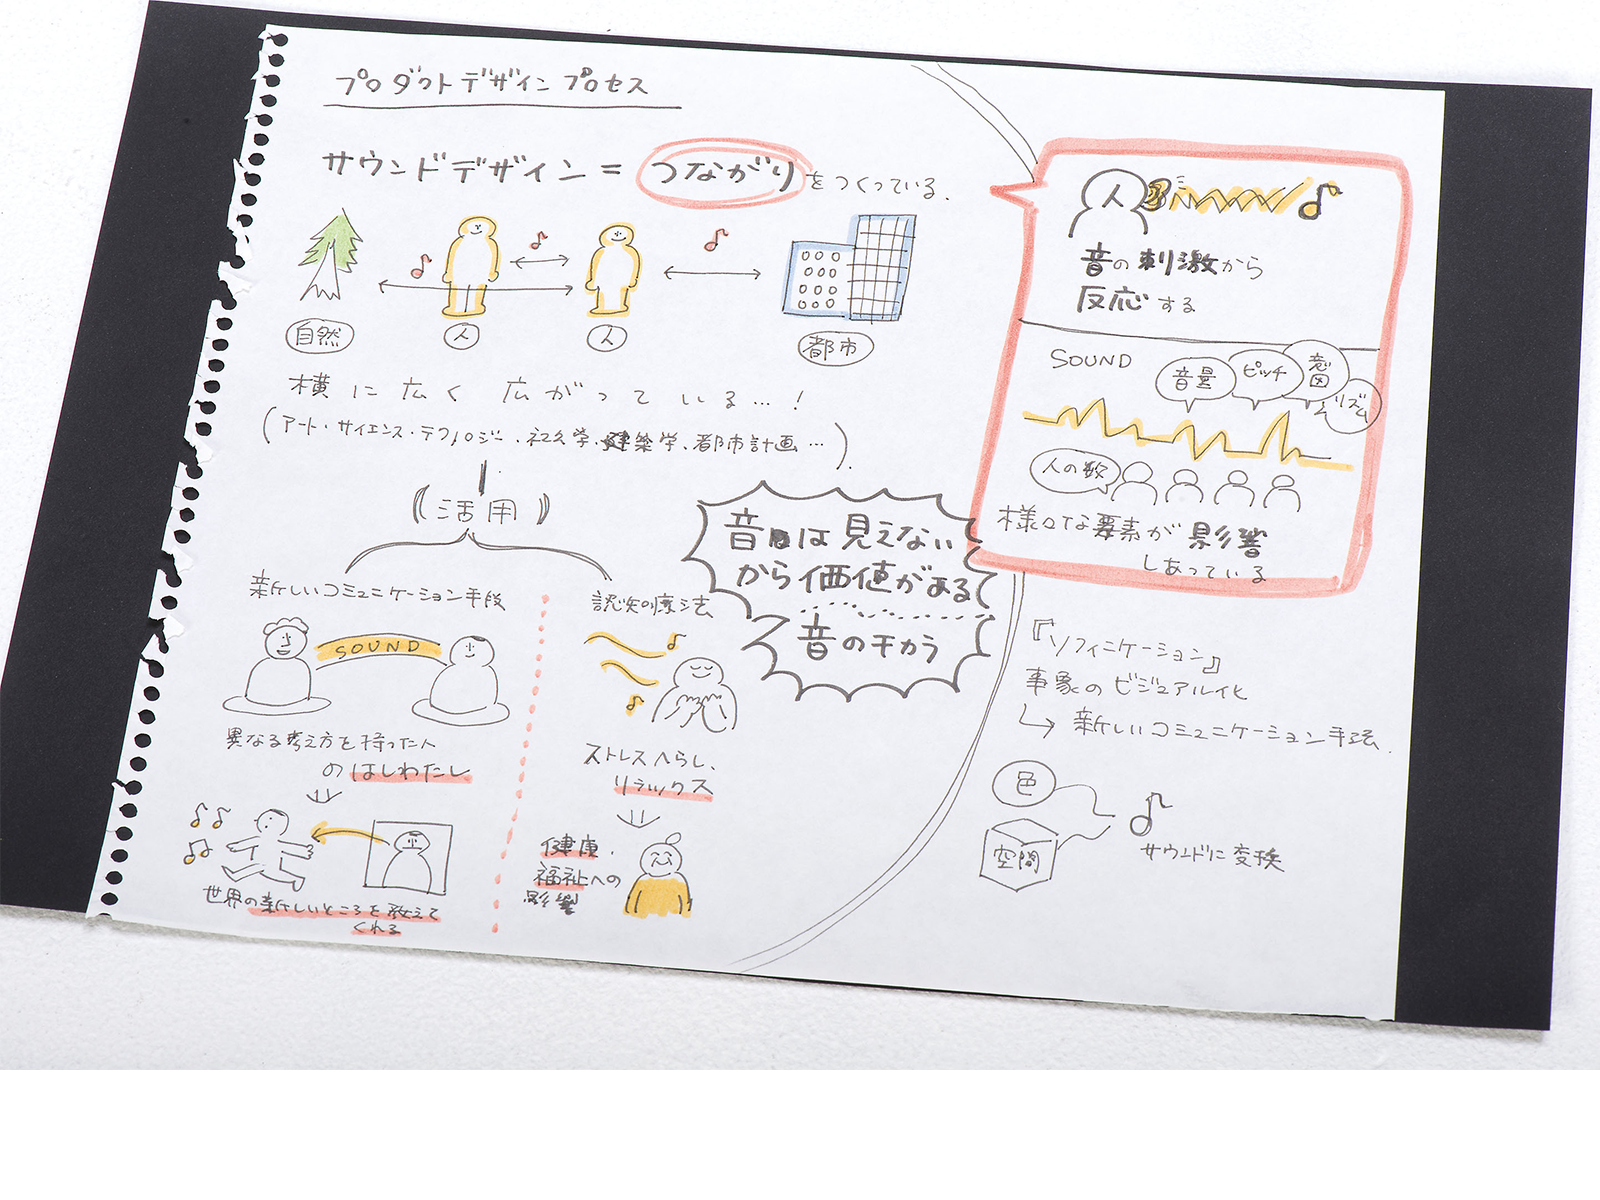 プロダクトデザインプロセス
サウンドデザイン = つながり をつくっている.
自然
人
人
都市
横に広く広がっている…!
(アート・サイエンス・テクノロジー・社会学、建築学、都市計画…).
(活用)
新しいコミュニケーション手段
SOUND
異なる考え方を持った人
のはしわたし
世界の新しいところを教えて
くれる
認知の療法
ストレスへらし、
リラックス
健康・
福祉への
影響
音は見えない
から価値がある
音のチカラ
人
音の刺激から
反応する
SOUND
音量
ピッチ
リズム
人の数
様々な要素が影響
しあっている
『ソフィニケーション』
事象のビジュアル化
新しいコミュニケーション手法.
色
空間
サウンドに変換